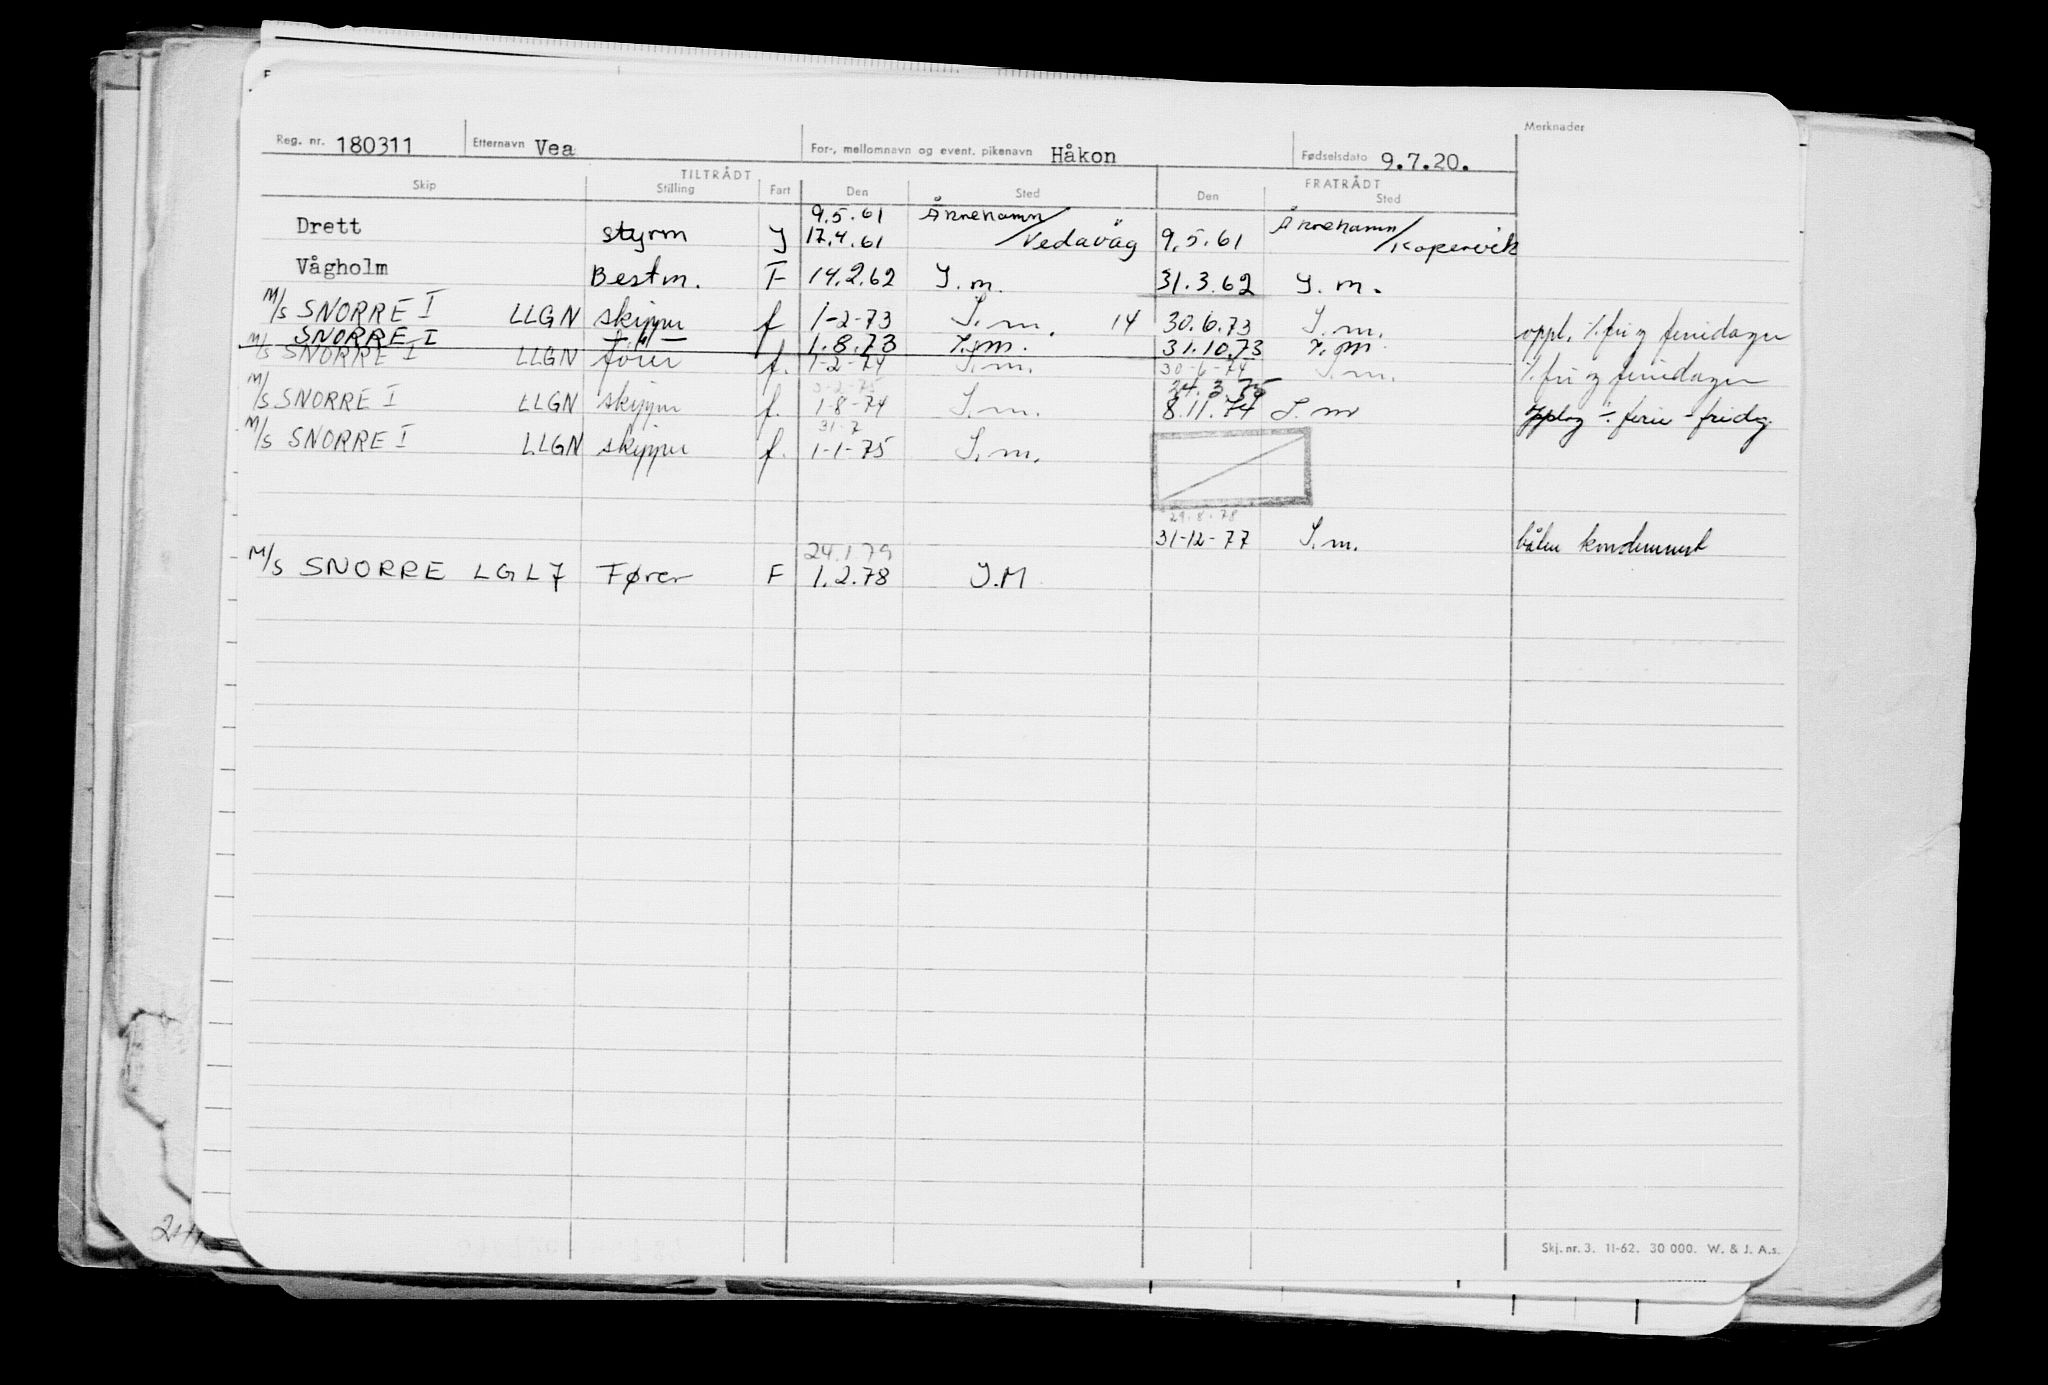 Merknader
Reg. nr. 180311 Etternavn Vea For-, mellomnavn og event. pikenavn Håkon Fødselsdato 9.7.20.
TILTRÅDT FRATRÅDT
Skip Stilling Fart Den Sted Den Sted
9.5.61 Åkrehamn/ Åkrehamn/
Drett styrm J 17.4.61 Vedavåg 9.5.61 Kopervik
Vågholm Bestm. F 14.2.62 J.m. 31.3.62 J.m.
M/S SNORRE I LLGN skipper f 1-2-73 S.m. 14 30.6.73 S.m. oppl. ÷ fri og feriedager
SNORRE I — " — 1.8.73 J.m. 31.10.73 J.m.
M/S SNORRE I LLGN fører f. 1-2-74 S.m. 30-6-74 S.m. ÷ fri og feriedager
24.3.75
M/S SNORRE I LLGN skipper f. 1-8-74 S.m. 8.11.74 S.m Opplag ÷ ferie - fridg.
31-7
M/S SNORRE I LLGN skipper f. 1-1-75 S.m.
29.8.78
31-12-77 S.m. båten kondemnert
24.1.79
M/S SNORRE LGL7 Fører F 1.2.78 J.M
Skj. nr. 3. 11-62. 30 000. W. & J. A.s.